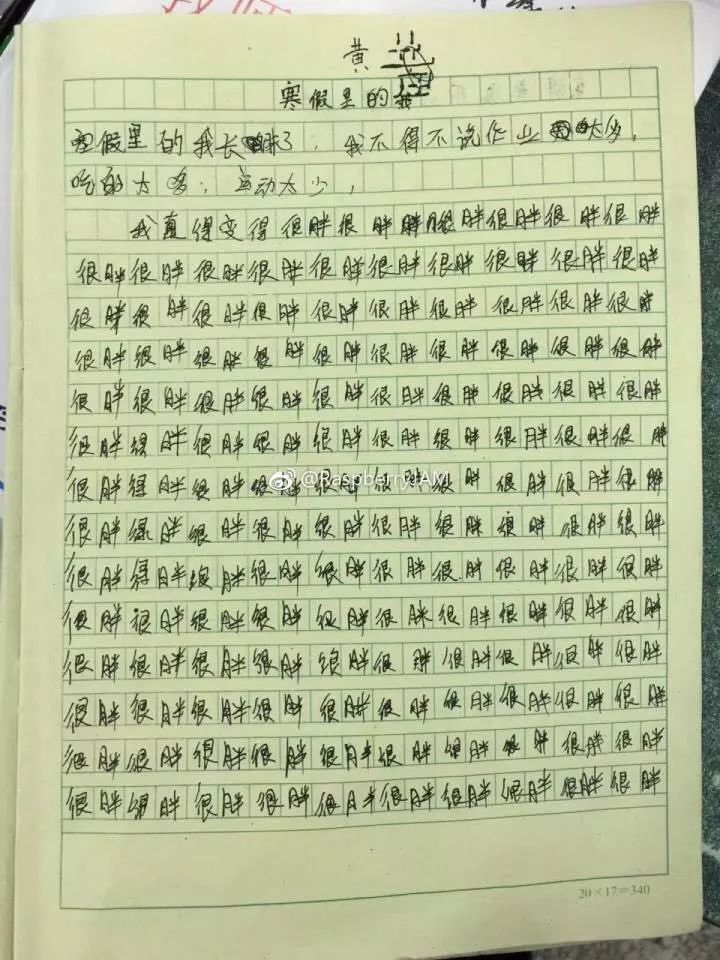 黄
寒假里的我
寒假里的我长胖了，我不得不说作业太多，
吃的太多，运动太少，
我真得变得很胖很胖胖很胖很胖很胖很胖
很胖很胖很胖很胖很胖很胖很胖很胖很胖很胖
很胖很胖很胖很胖很胖很胖很胖很胖很胖很胖
很胖很胖很胖很胖很胖很胖很胖很胖很胖很胖
很胖很胖很胖很胖很胖很胖很胖很胖很胖很胖
很胖很胖很胖很胖很胖很胖很胖很胖很胖很胖
很胖很胖很胖很胖很胖很胖很胖很胖很胖很胖
@RaspberryJAM
很胖很胖很胖很胖很胖很胖很胖很胖很胖很胖
很胖很胖很胖很胖很胖很胖很胖很胖很胖很胖
很胖很胖很胖很胖很胖很胖很胖很胖很胖很胖
很胖很胖很胖很胖很胖很胖很胖很胖很胖很胖
很胖很胖很胖很胖很胖很胖很胖很胖很胖很胖
很胖很胖很胖很胖很胖很胖很胖很胖很胖很胖
很胖很胖很胖很胖很胖很胖很胖很胖很胖很胖
20×17=340